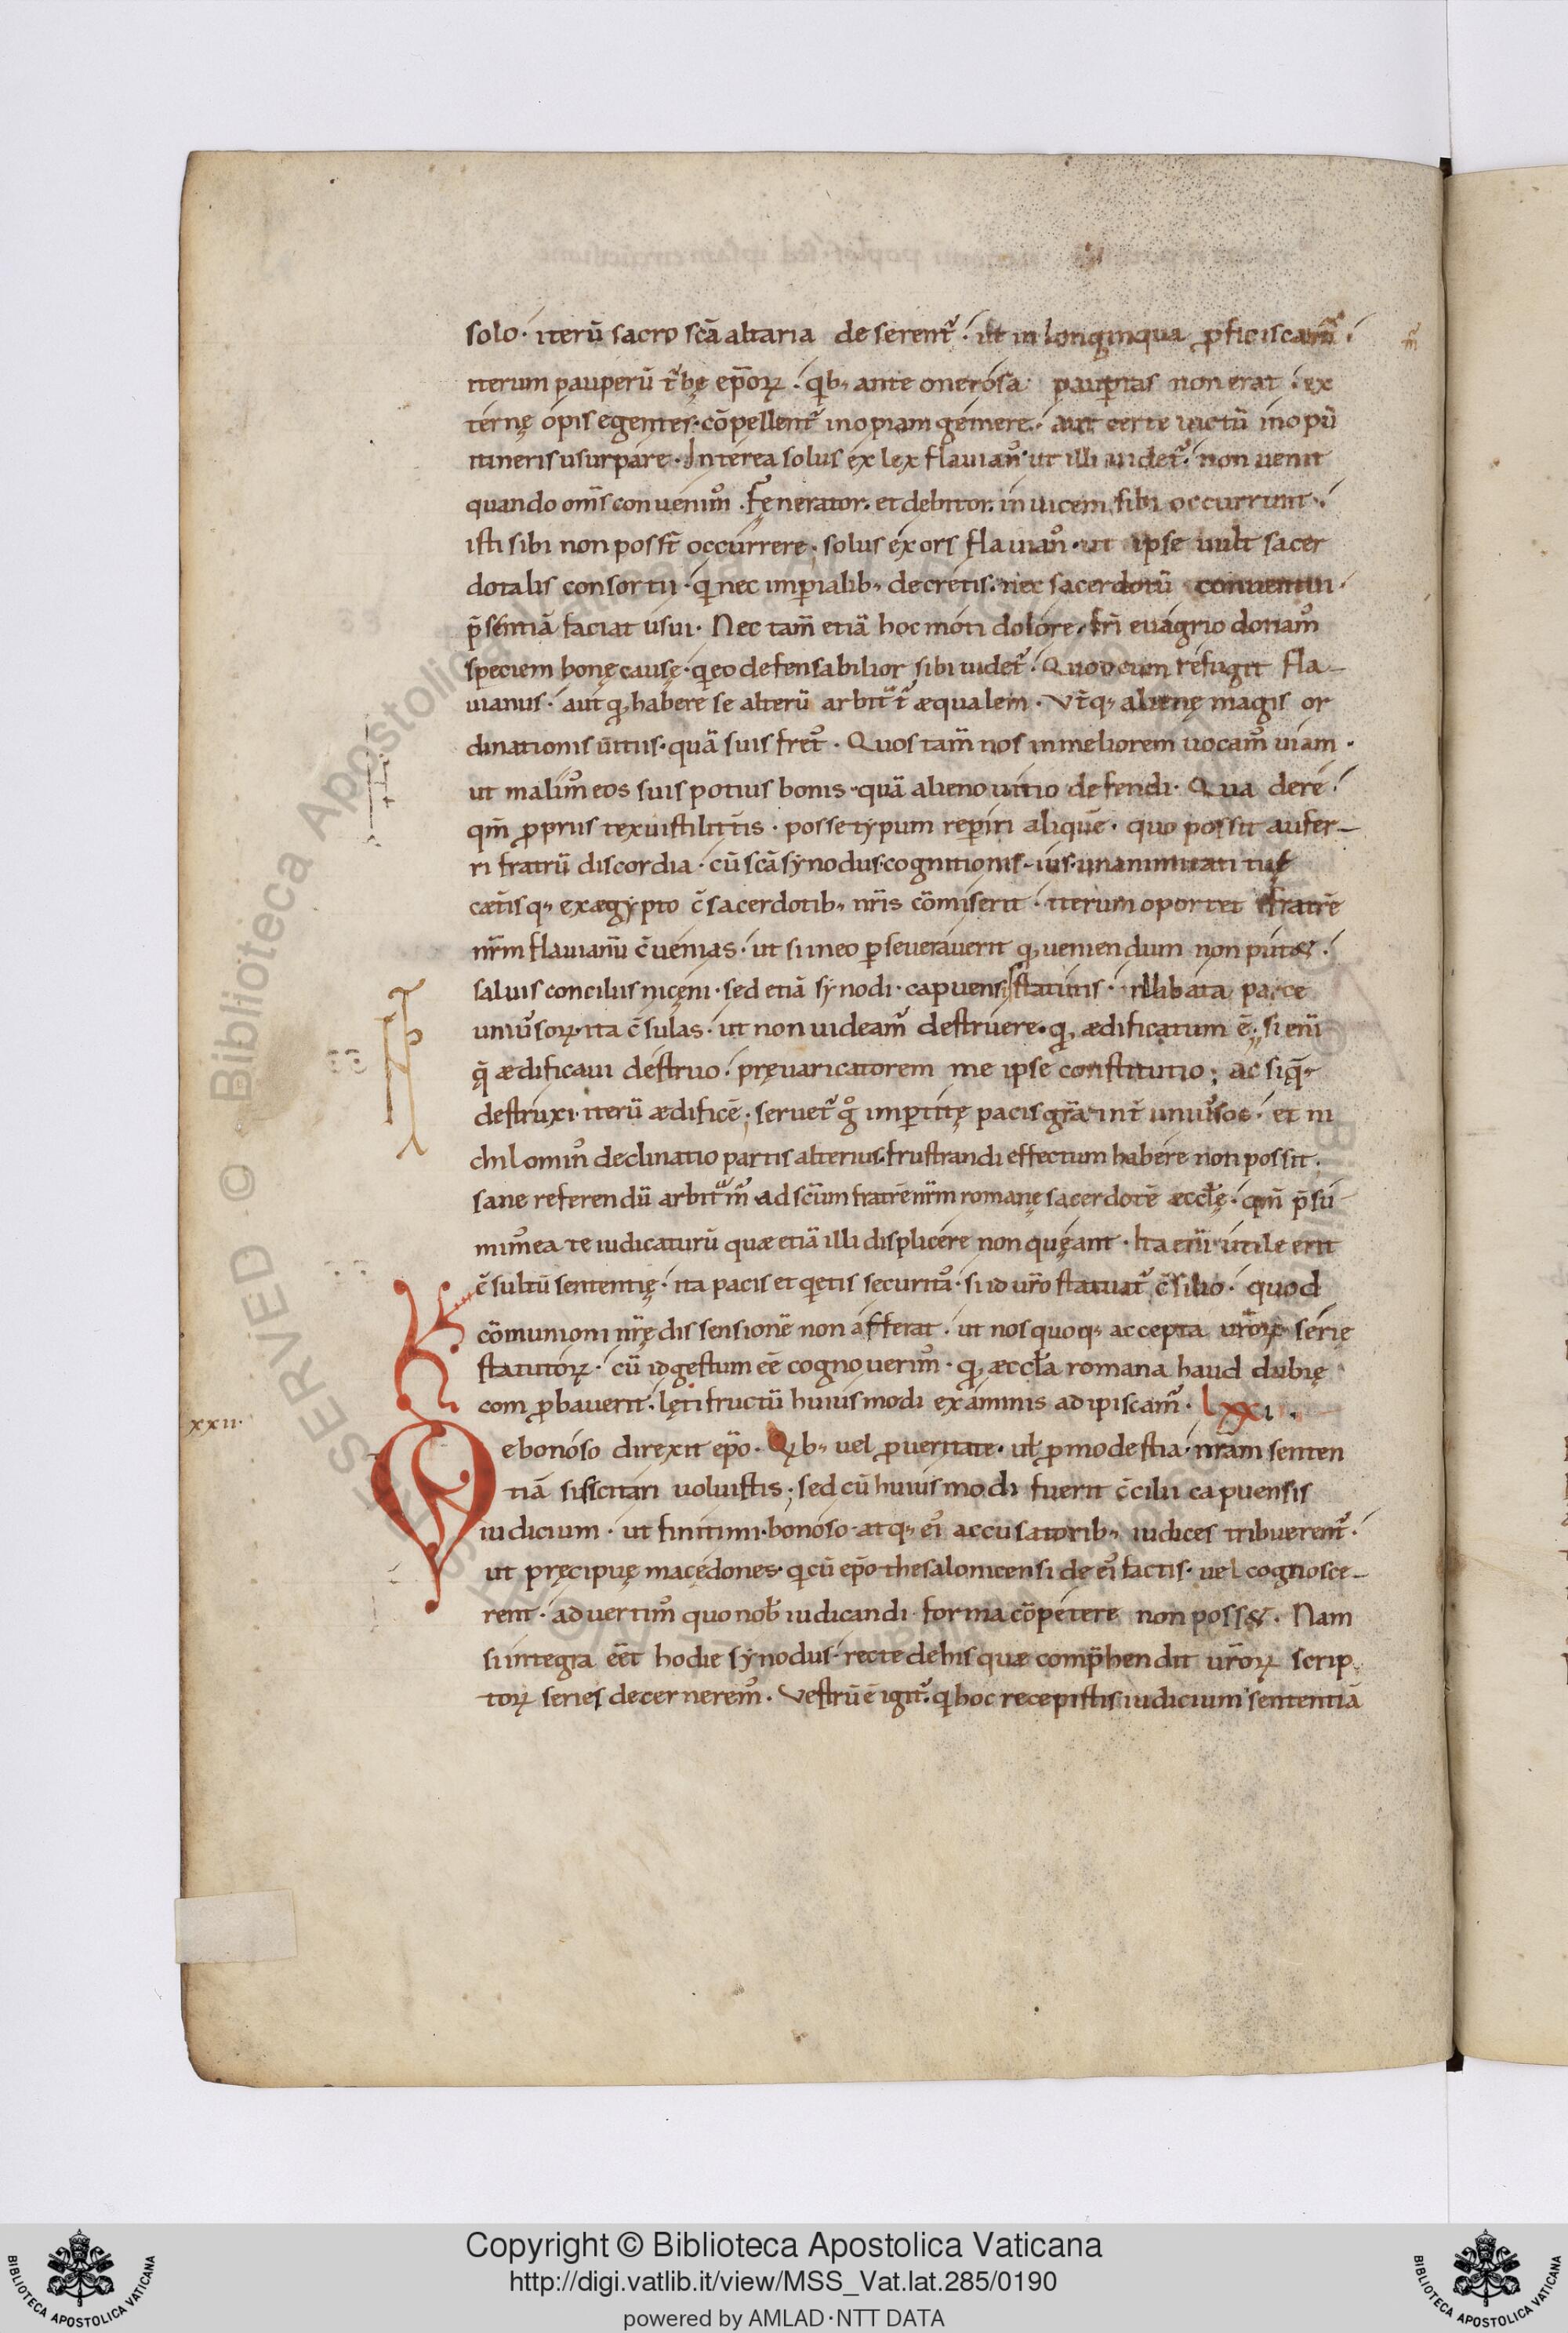 solo · iterū sacro scā altaria deserentᷣ · ut in longinqua ꝓficiscamᷣ ·
iterum pauperū tᷣbę ep̄oꝝ · qb; ante onerosa paup̱tas non erat · ex
ternę opis egentes · cōpellentᷣ inopiam gemere · aut certe uictū inopū
itineris usurpare · Interea solus exlex flauianꝰ ut illi uidetᷣ · non uenit
quando om̄s conuenimꝰ · Fęnerator · et debitor · in uicem sibi occurrunt ·
isti sibi non posst̄ occurrere · solus exors flauianꝰ · ut ipse uult sacer
dotalis consortii · q nec imp̱ialib; decretis · nec sacerdotū conuentui ·
p̄sentiā faciat usui · Nec tam̄ etiā hoc moti dolore · fr̄i euagrio donamꝰ
speciem bonę causę · q eo defensabilior sibi uidetᷣ · Quod eum refugit fla-
uianus · aut qđ habere se alterū arbitratᷣ æqualem · Vtq; alienę magis or
dinationis uitiis · quā suis fretꝰ · Quos tam̄ nos in meliorem uocamꝰ uiam ·
ut malimꝰ eos suis potius bonis · quā alieno uitio defendi · Qua de re ·
qm̄ ꝓpriis texuisti litt̄is · posse typum rep̱iri aliquē · quo possit aufer-
ri fratrū discordia · cū scā synodus cognitionis ius · unanimitati tuę
cæt̄isq; ex ægypto c̄sacerdotib; nr̄is cōmiserit · iterum oportet fratrē
nr̄m flauianū c̄uenias · ut si in eo p̱seuerauerit qđ ueniendum non putet ·
saluis conciliis nicęni · sed etiā synodi · capuensis statutis · illibata pace
uniūsoꝝ · ita c̄sulas · ut non uideamᷣ destruere · qđ ædificatum ē; si eni
q̄ ædificaui destruo · pręuaricatorem me ipse constitutio; ac si q̄
destruxi · iterū ædificē; seruetᷣ gͦ imp̱titę pacis gr̄a int̄ uniūsos · et ni
chilominꝰ declinatio partis alterius · frustrandi effectum habere non possit ·
sane referendū arbitramᷣ · ad sc̄um fratrē nr̄m romanę sacerdotē eccłę · qm̄ p̄su
mimꝰ ea te iudicaturū quæ etiā illi displicere non quęant · Ita eni utile erit
c̄sultū sententię · ita pacis et qetis securitaꝰ · si id uro statuatᷣ c̄silio · quod
cōmunioni nr̄ę dissensionē non afferat · ut nos quoq; accepta ur̄oꝝ serię
statutoꝝ · cū id gestum eē cognouerimꝰ · qđ æccła romana haud dubię
comꝓbauerit · lęti fructū huiusmodi examinis adipiscamᷣ · lxxi ·
xxii·
De bonoso direxit ep̄o · Qb; uel ꝓ ueritate · uł ꝓ modestia · nr̄am senten
tiā sisscitari uoluistis; sed cū huiusmodi fuerit c̄cilii capuensis
iudicium · ut finitimi · bonoso atq; eiꝰ accusatorib; iudices tribuerentᷣ ·
ut pręcipuę macedones · q cū ep̄o thesalonicensi de eiꝰ factis · uel cognosce-
rent · aduertimꝰ quo nob̄ iudicandi forma cōpetere non posset · Nam
si integra eēt hodie synodus · recte de his quæ comp̄hendit ur̄oꝝ scrip
toꝝ series decerneremꝰ · Vestrū ē igitᷣ · q hoc recepistis iudicium sententiā
Copyright © Biblioteca Apostolica Vaticana
http://digi.vatlib.it/view/MSS_Vat.lat.285/0190
powered by AMLAD·NTT DATA
BIBLIOTECA APOSTOLICA VATICANA
BIBLIOTECA APOSTOLICA VATICANA